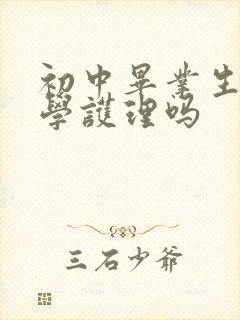 初中畢業生
學護理吗
三石少爺